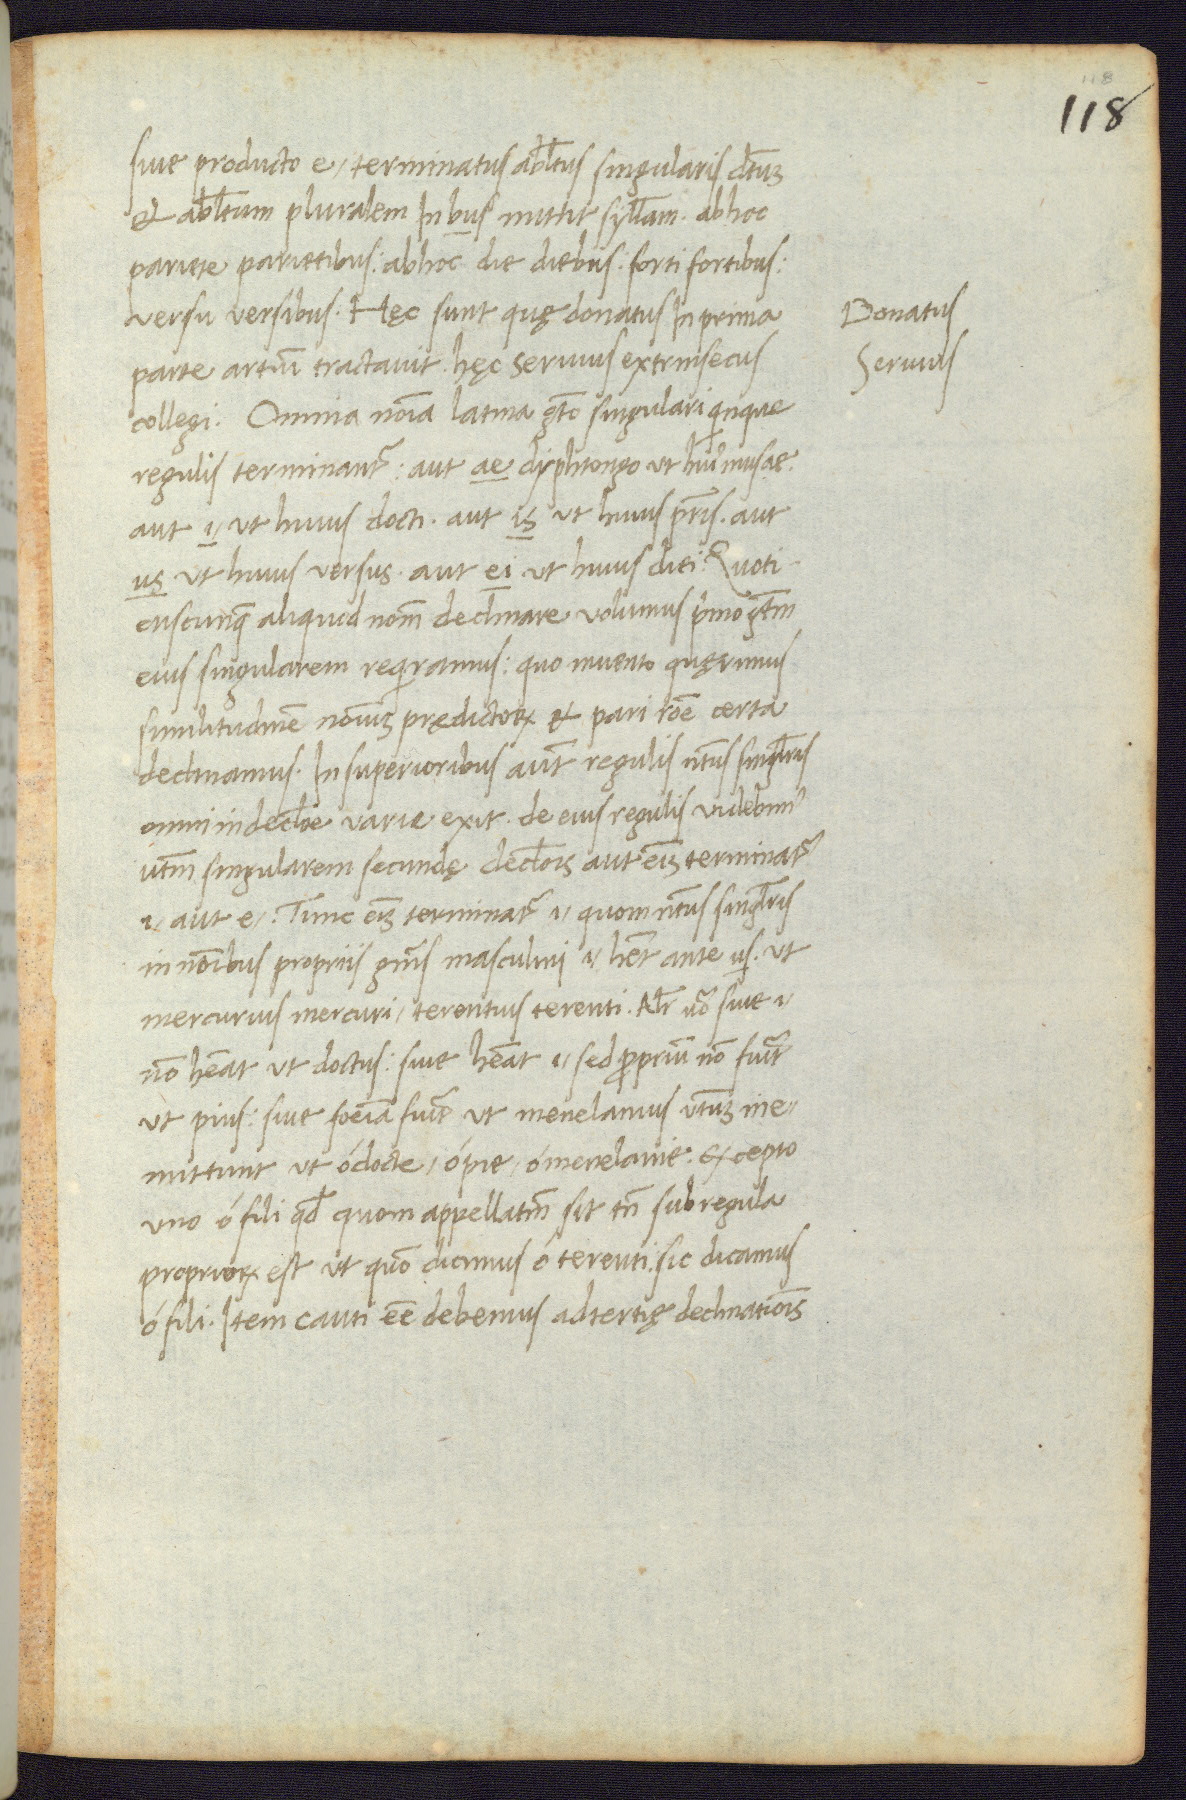 118
118
siue producto e, terminatus abl̄tus singularis dt̄uꝫ
& abl̄tum pluralem In bus mittit syll̄am. ab hoc
pariete parietibus: ab hoc die diebus. forti fortibus:
versu versibus. Hęc sunt quę donatus In prima
Donatus
parte artiū tractauit. hęc seruius extrinsecus
Seruius
collegi. Omnia nōīa latina gt̄o singulari qͥnque
regulis terminant᷑: aut ae diphtongo vt huiꝰ musae.
aut i, vt huius docti. aut is vt huius pr̄is. aut
us vt huius versus. aut ei vt huius diei: Quoti-
enscunqꝫ aliquod nom̄ declinare volumus pͥmo gt̄m
eius singularem reqͥramus: quo inuento quęrimus
similitudinē nōīuꝫ prędictoꝝ & pari rōe certa
declinamus. In superioribus aut̄ regulis nt̄us singl̄aris
omni in decl̄oe varie exit. de eius regulis videbimꝰ
vt̄m singularem secundę decl̄ois aut eīs terminat᷑
i, aut e,. Tunc eīs terminat᷑ i, quom nt̄us singl̄aris
in nōibus propriis gn̄is masculini i, hēt ante us. vt
mercurius mercuri, terentius terenti. Alr̄ uͦo siue i,
nō hēat vt doctus: siue hēat i, sed ꝓpriū nō fuīt
vt pius: siue foeīa fuīt vt menelauus vt̄uꝫ in e,
mittunt vt ó docte, ó pie, ó menelaue. Excepto
uno ó fili qd̄ quom appellatm̄ sit tn̄ sub regula
proprioꝝ est vt quō dicimus ó terenti. sic dicamus
ó fili. Item cauti eē debemus ad tertię declinatiōis